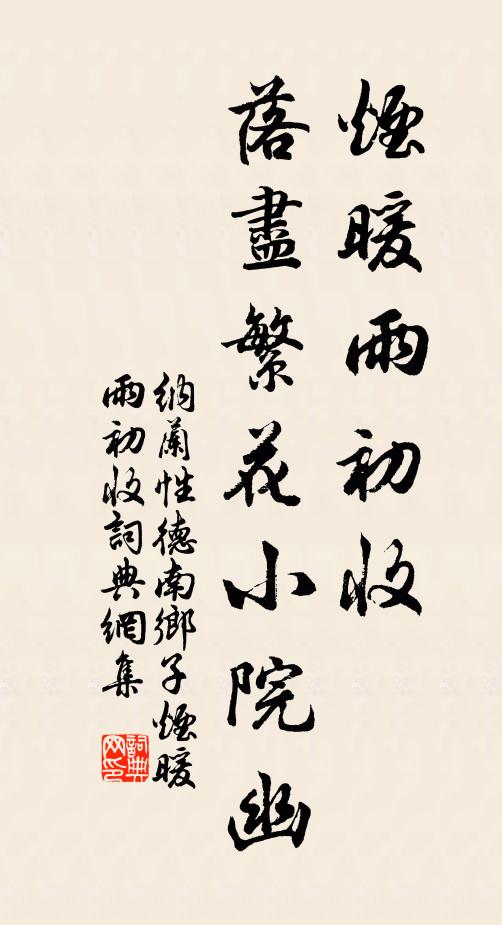 煙暖雨初收
落盡繁花小院幽
納蘭性德南鄉子煙暖
雨初收詞典網集
詞典
网印